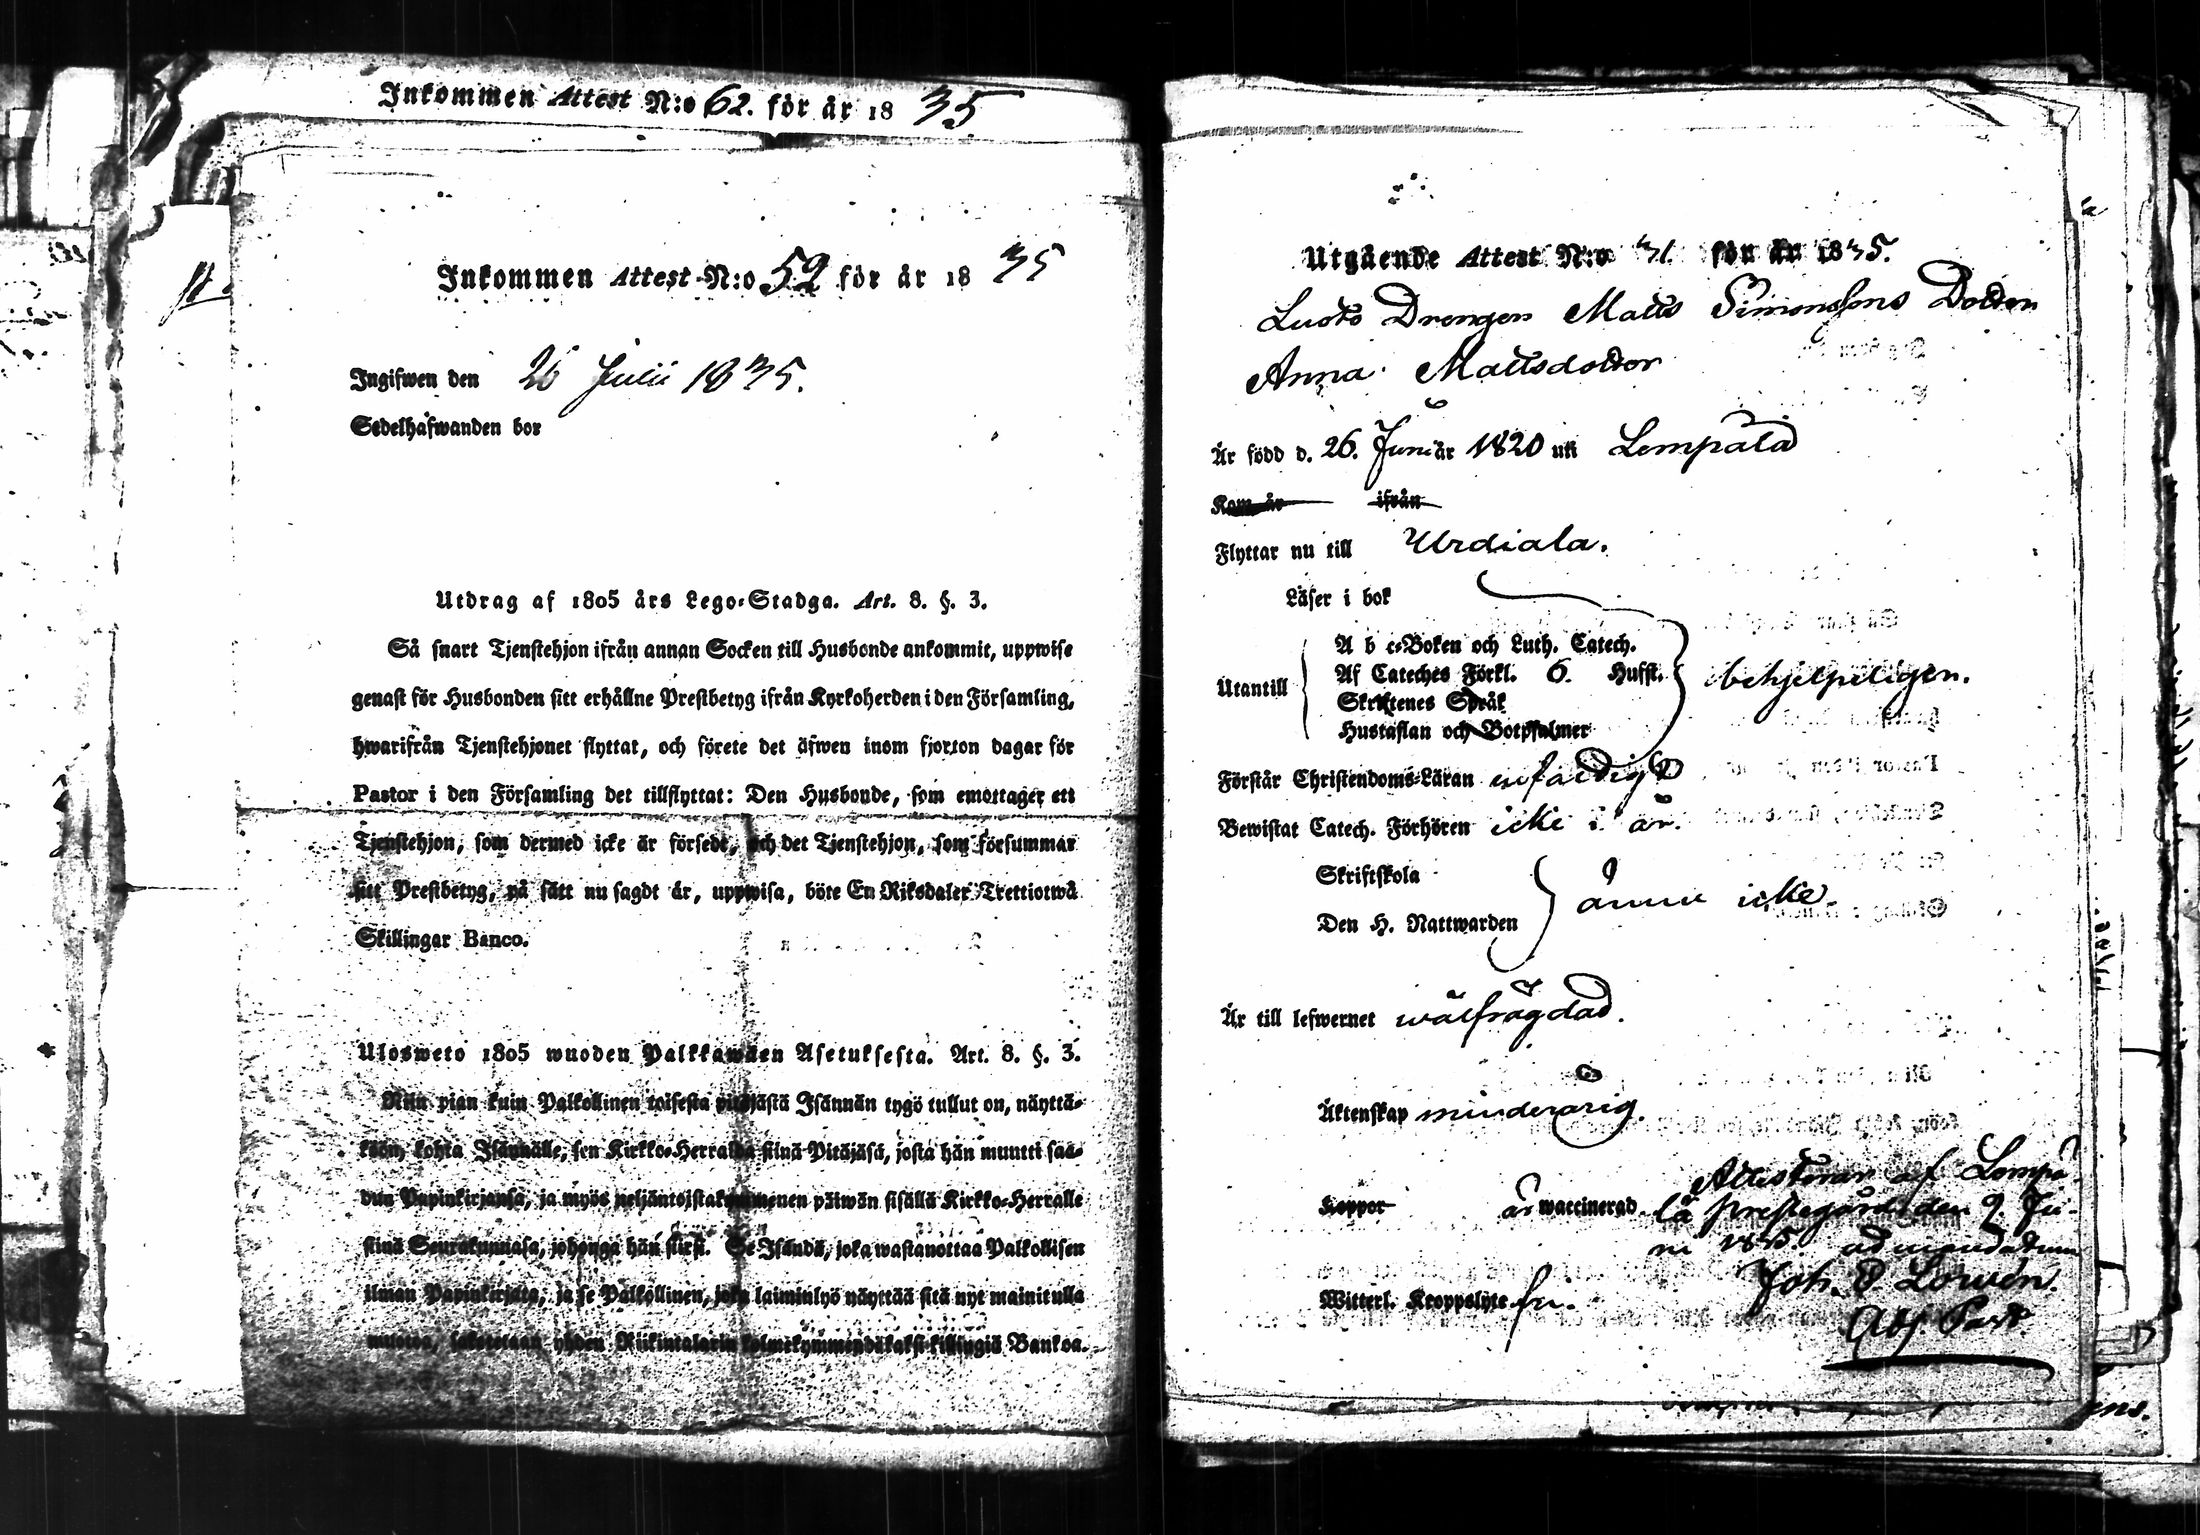 Inkommen Attest N:o 62. för år 1835
Inkommen Attest N:o 52 för år 1835
Ingifwen den 26 Julii 1835.
Sedelhafwanden bor
Utdrag af 1805 års Lego-Stadga. Art. 8. §. 3.
Så snart Tjenstehjon ifrån annan Socken till Husbonde ankommit, uppwise
genast för Husbonden sitt erhållne Prestbetyg ifrån Kyrkoherden i den Församling,
hwarifrån Tjenstehjonet flyttat, och förete det äfwen inom fjorton dagar för
Pastor i den Församling det tillflyttat: Den Husbonde, som emottager ett
Tjenstehjon, som dermed icke är försedt, och det Tjenstehjon, som försummar
sitt Prestbetyg, på sätt nu sagdt är, uppwisa, böte En Riksdaler Trettiotwå
Skillingar Banco.
Ulosweto 1805 wuoden Palkkawäen Asetuksesta. Art. 8. §. 3.
Niin pian kuin Palkollinen toisesta pitäjästä Isännän tygö tullut on, näyttä-
köön, kohta Isännälle, sen Kirkko-Herralda siinä Pitäjäsä, josta hän muutti saa-
dun Papinkirjansa, ja myös neljäntoistakymmenen päiwän sisällä Kirkko-Herralle
siinä Seurakunnasa, johonga hän siirsi. Se Isändä, joka wastanottaa Palkollisen
ilman Papinkirjata, ja se Palkollinen, joka laiminlyö näyttää sitä nyt mainitulla
muotoa, sakotetaan yhden Riikintalarin kolmekymmendäkaksi killingiä Bankoa.
Utgående Attest N:o 31. för år 1835.
Lusts Drengen Matts Simonssons Dotter
Anna Mattsdotter
Är född d. 26. Juni år 1820 uti Lempälä
Kom år ifrån
Flyttar nu till Urdiala.
Läser i bok
A b c-Boken och Luth. Catech.
Af Cateches Förkl. 6. Hufst.
Utantill behjelpeligen.
Skriftenes Språk
Hustaflan och Botpsalmer
Förstår Christendoms-Läran enfaldigt
Bewistat Catech. Förhören icke i år.
Skriftskola
ännu icke.
Den H. Nattwarden
Är till lefwernet wälfrägdad.
Äktenskap minderårig.
Attesterar af Lempä-
Koppor är waccinerad lä prestegård den 9. Ju-
ni 1835. ad mandatum
Joh. Lowén.
Witterl. Kroppslyte fri.
Adj. Past.